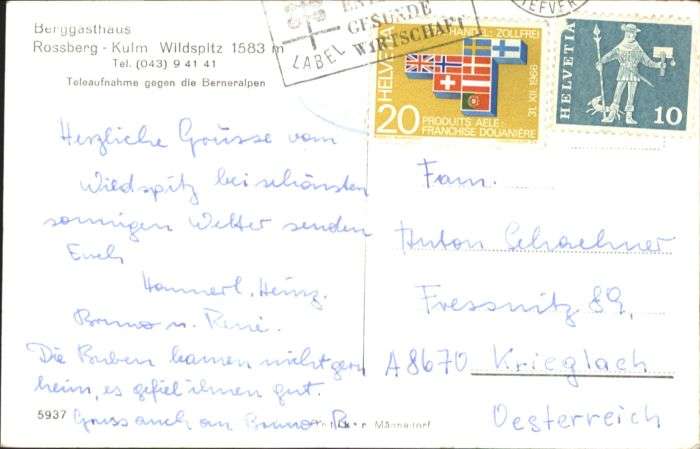 Berggasthaus
Rossberg - Kulm Wildspitz 1583 m
Tel. (043) 9 41 41
Teleaufnahme gegen die Berneralpen
GESUNDE
LABEL WIRTSCHAFT
HANDEL: ZOLLFREI
HELVETIA
31. XII. 1966
20
PRODUITS AELE-
FRANCHISE DOUANIÈRE
HELVETIA
10
Herzliche Grüsse vom
Wildspitz bei schönsten
sonnigen Wetter senden
Euch
Hannerl, Heinz,
Bruno u. René.
Die Buben kamen nicht gern
heim, es gefiel ihnen gut.
Gruss auch an Bruno
Fam.
Anton
Fressnitz 89,
A8670 Krieglach
Oesterreich
5937
Männedorf